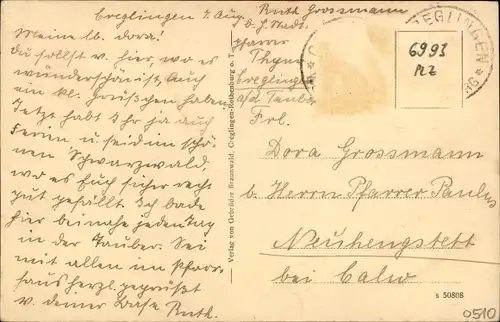 Creglingen 7. Aug.
Meine lb. Dora!
Du sollst v. hier, wo es
wunderschön ist, auch
ein kl. Grüßchen haben.
Jetzt habt Ihr ja auch
Ferien u. seid im schö-
nen Schwarzwald,
wo es Euch sicher recht
gut gefällt. Ich bade
hier beinahe jeden Tag
in der Tauber. Sei
mit allen im Pfarr-
haus herzl. gegrüßt
v. deiner Base Ruth.
Ruth Grossmann
b. H. Stadt-
pfarrer
Creglingen
a/d Tauber
Verlag von Gebrüder Braunwald, Creglingen-Rothenburg o. T.
CREGLINGEN
6993
PLZ
Frl.
Dora Grossmann
b. Herrn Pfarrer Paulus
Neuhengstett
bei Calw
s 50808
0510